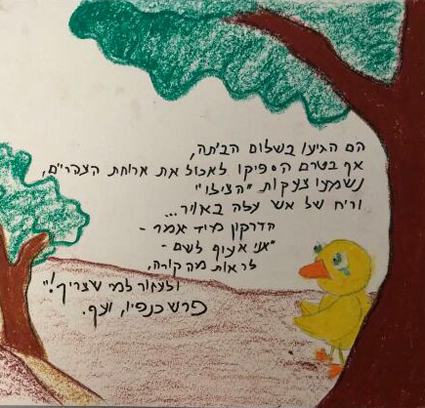 הם הגיעו בשלום הביתה,
אך בטרם הספיקו לאכול את ארוחת הצהריים,
נשמעו צעקות "הצילו"
וריח של אש עלה באוויר...
הדרקון מיד אמר -
"אני אעוף לשם -
לראות מה קורה,
ולעזור למי שצריך!"
פרש כנפיו, ועף.